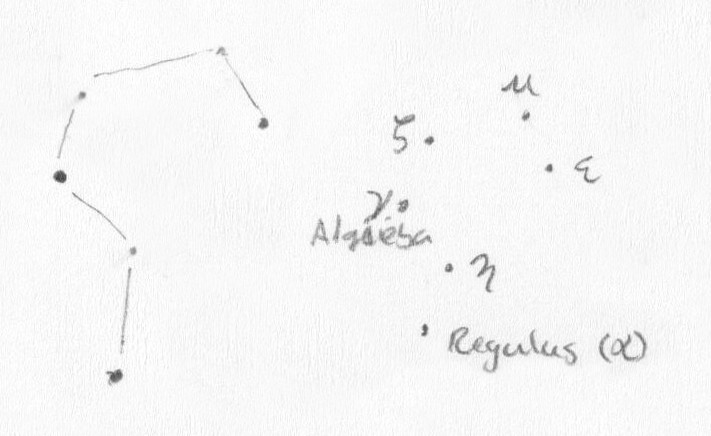 μ
ζ
ε
γ
Algieba
η
Regulus (α)